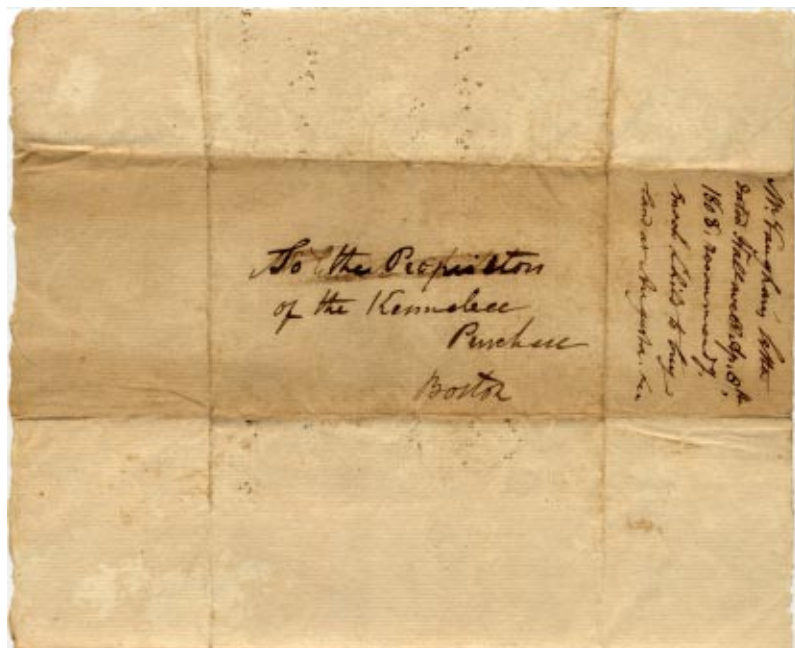 To the Proprietors
of the Kennebec
Purchase
Boston
Mr. Vaughan's letter
dated Hallowell Ap. 8th
1808, recommendg.
Childs to buy
land at Augusta